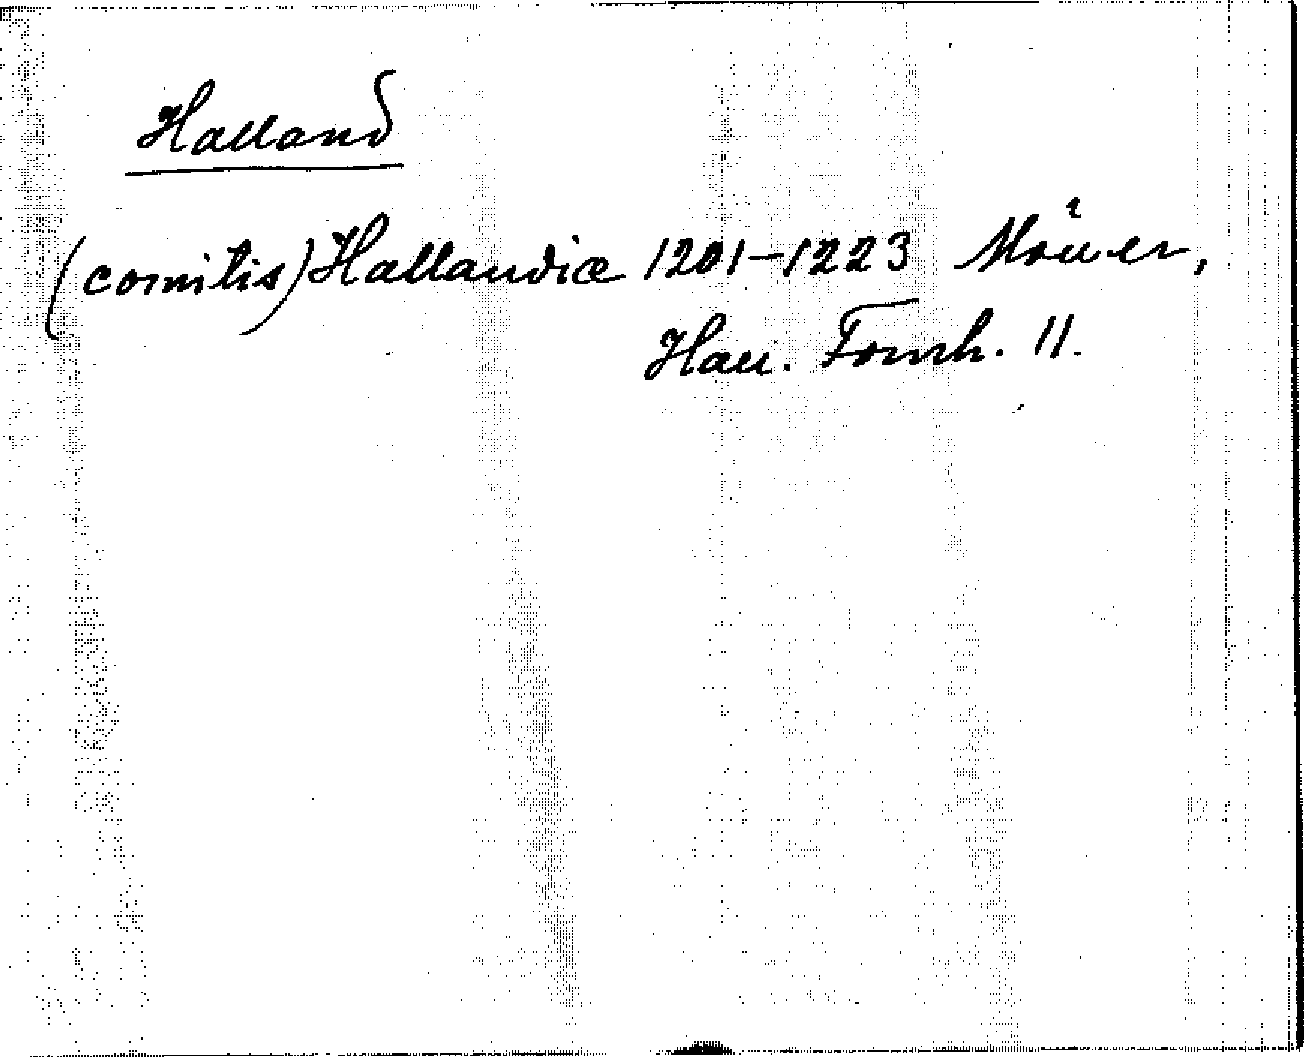 Halland
(comitis) Hallandiæ 1201-1223
Hall. Fornh. II.